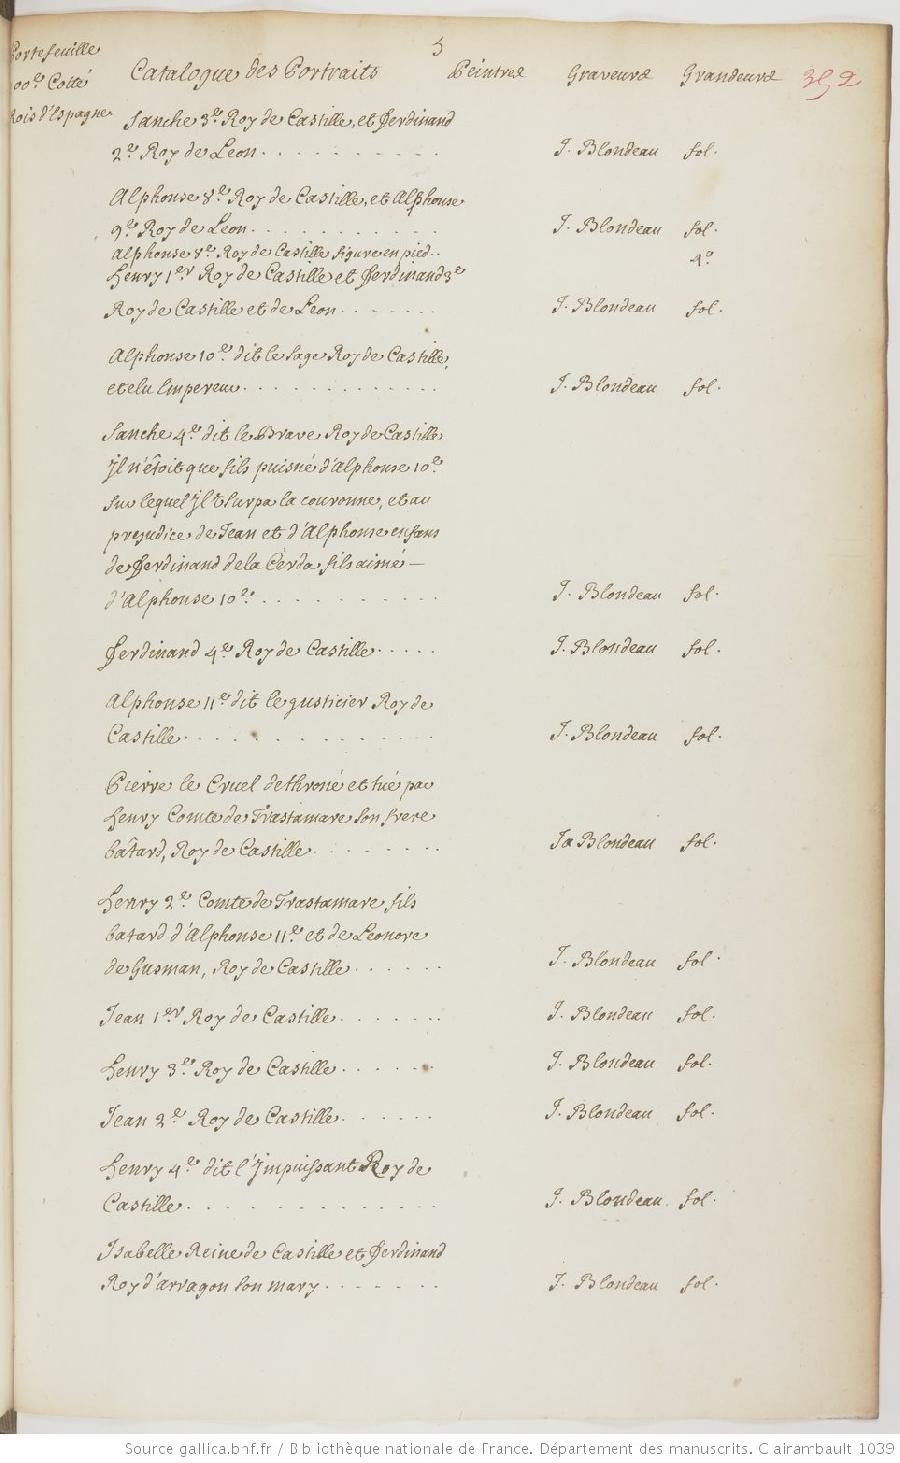 5
Portefeuille
Cotté
Rois d'Espagne
Catalogue des Portraits Peintres Graveurs Grandeurs 352
Sanche 3e. Roy de Castille, et Ferdinand
2e. Roy de Leon. . . . . . . . . . . J. Blondeau fol.
Alphonse 8e. Roy de Castille, et Alphonse
9e. Roy de Leon. . . . . . . . . . . J. Blondeau fol.
Alphonse 8e. Roy de Castille figure en pied. . 4°
Henry 1er Roy de Castille et Ferdinand 3e
Roy de Castille et de Leon. . . . . . . J. Blondeau fol.
Alphonse 10e. dit le Sage Roy de Castille,
et elu Empereur. . . . . . . . . . . . J. Blondeau fol.
Sanche 4e. dit le Brave Roy de Castille
Jl n'étoit que fils puisné d'Alphonse 10e.
sur lequel Jl Usurpa la couronne, et au
prejudice de Jean et d'Alphonse enfans
de Ferdinand de la Cerda fils aisné —
d'Alphonse 10e. . . . . . . . . . . J. Blondeau fol.
Ferdinand 4e. Roy de Castille. . . . . J. Blondeau fol.
Alphonse 11e. dit le justicier Roy de
Castille. . . . . . . . . . . . . J. Blondeau fol.
Pierre le Cruel dethroné et tué par
Henry Comte de Trastamare son frere
bâtard, Roy de Castille. . . . . . . Ja Blondeau fol.
Henry 2e. Comte de Trastamare fils
batard d'Alphonse 11e. et de Leonore
de Gusman, Roy de Castille. . . . . . J. Blondeau fol.
Jean 1er. Roy de Castille. . . . . . . J. Blondeau fol.
Henry 3e. Roy de Castille. . . . . . J. Blondeau fol.
Jean 2e. Roy de Castille. . . . . . J. Blondeau fol.
Henry 4e. dit l'Jmpuissant Roy de
Castille. . . . . . . . . . . . . . J. Blondeau. fol.
Isabelle Reine de Castille et Ferdinand
Roy d'arragon son mary. . . . . . . J. Blondeau fol.
Source gallica.bnf.fr / Bibliothèque nationale de France. Département des manuscrits. Clairambault 1039